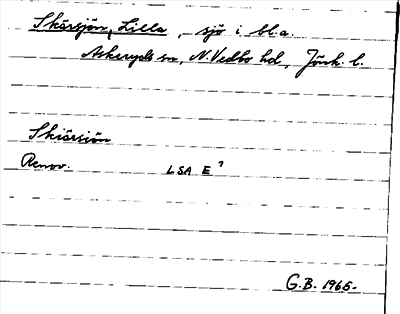 Skärsjön, Lilla, sjö i bl.a.
Askeryds sn, N. Vedbo hd, Jönk. l.
Skiärsiön
Renov. LSA E 7
G.B. 1965.